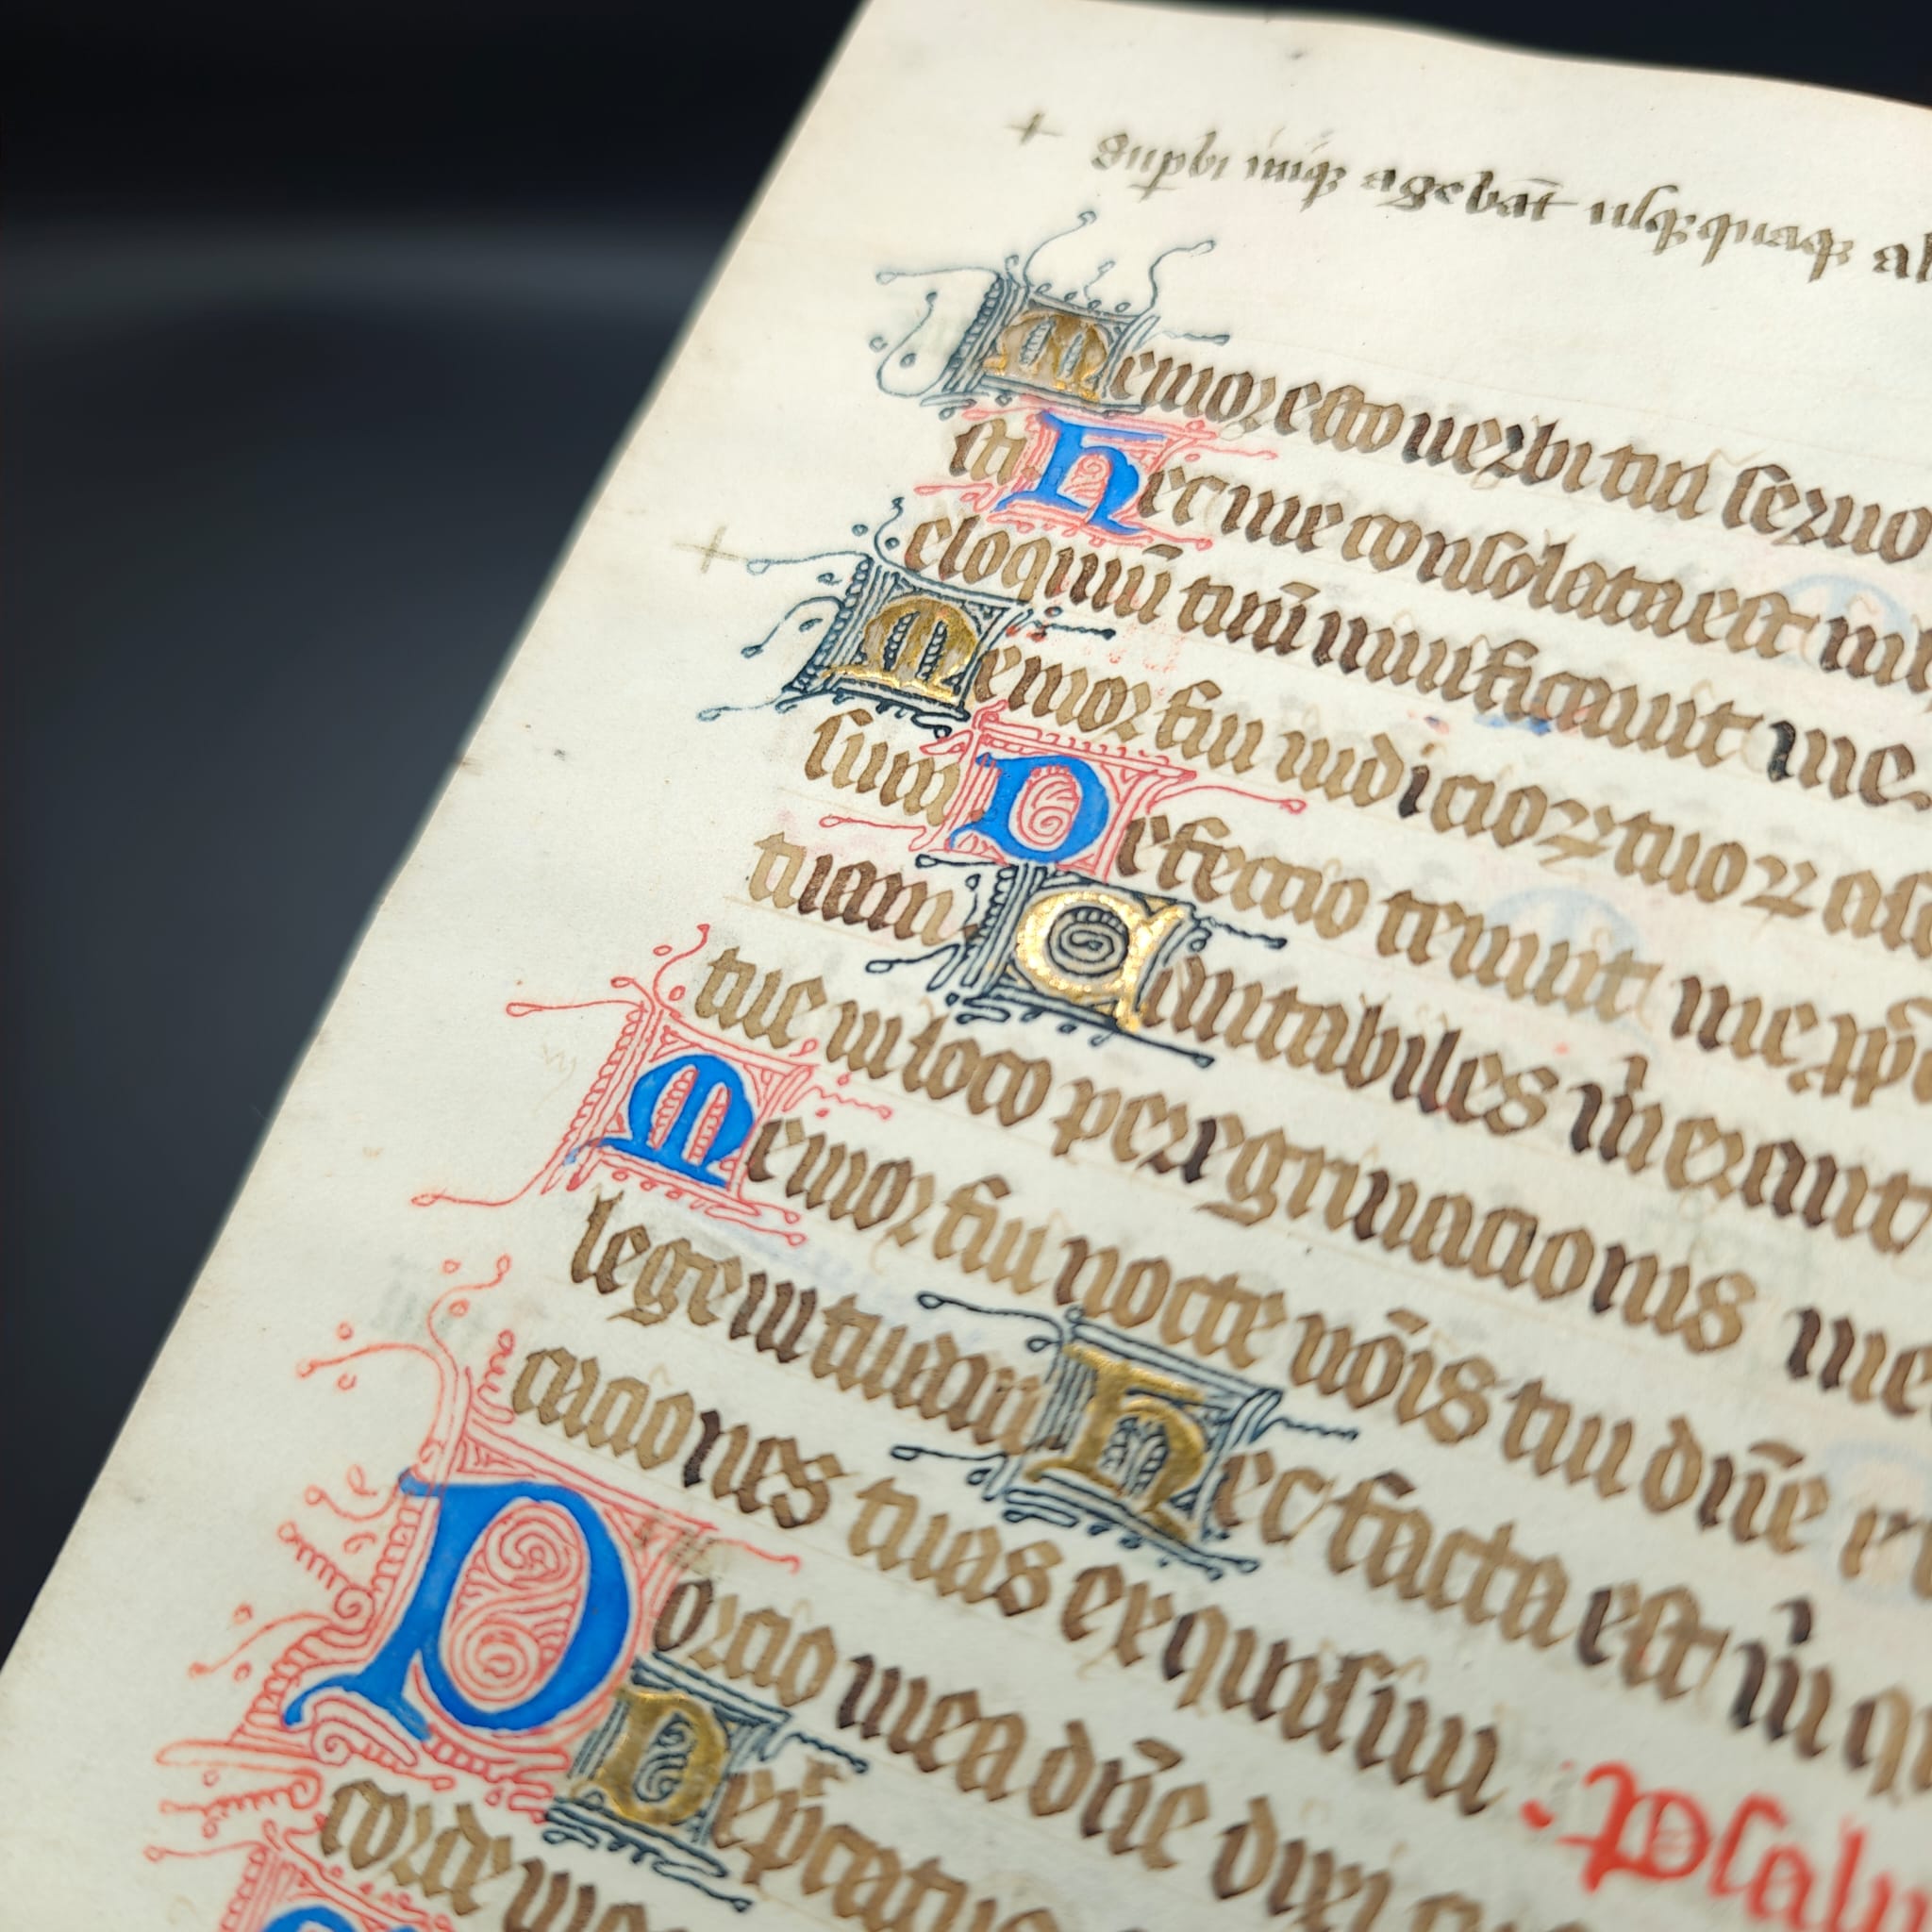 + sup̱bi iniq̄ȝ agebāt usq̄ȝquaq̄ȝ
Memor esto uerbi tui seruo
cti. Hec me consolata est in
eloquiū tuū uiuificauit me.
Memor fui iudicioꝝ tuoꝝ
sum Defectio tenuit me
tuam. Cantabiles m̍ erant
tue in loco peregrinacionis me
Memor fui nocte nōis tui dn̄e
legem tuam Hec facta est m̍
caciones tuas exquisiui : Psal
Porcio mea dn̄e dixi
Dep̄catus
corde meo